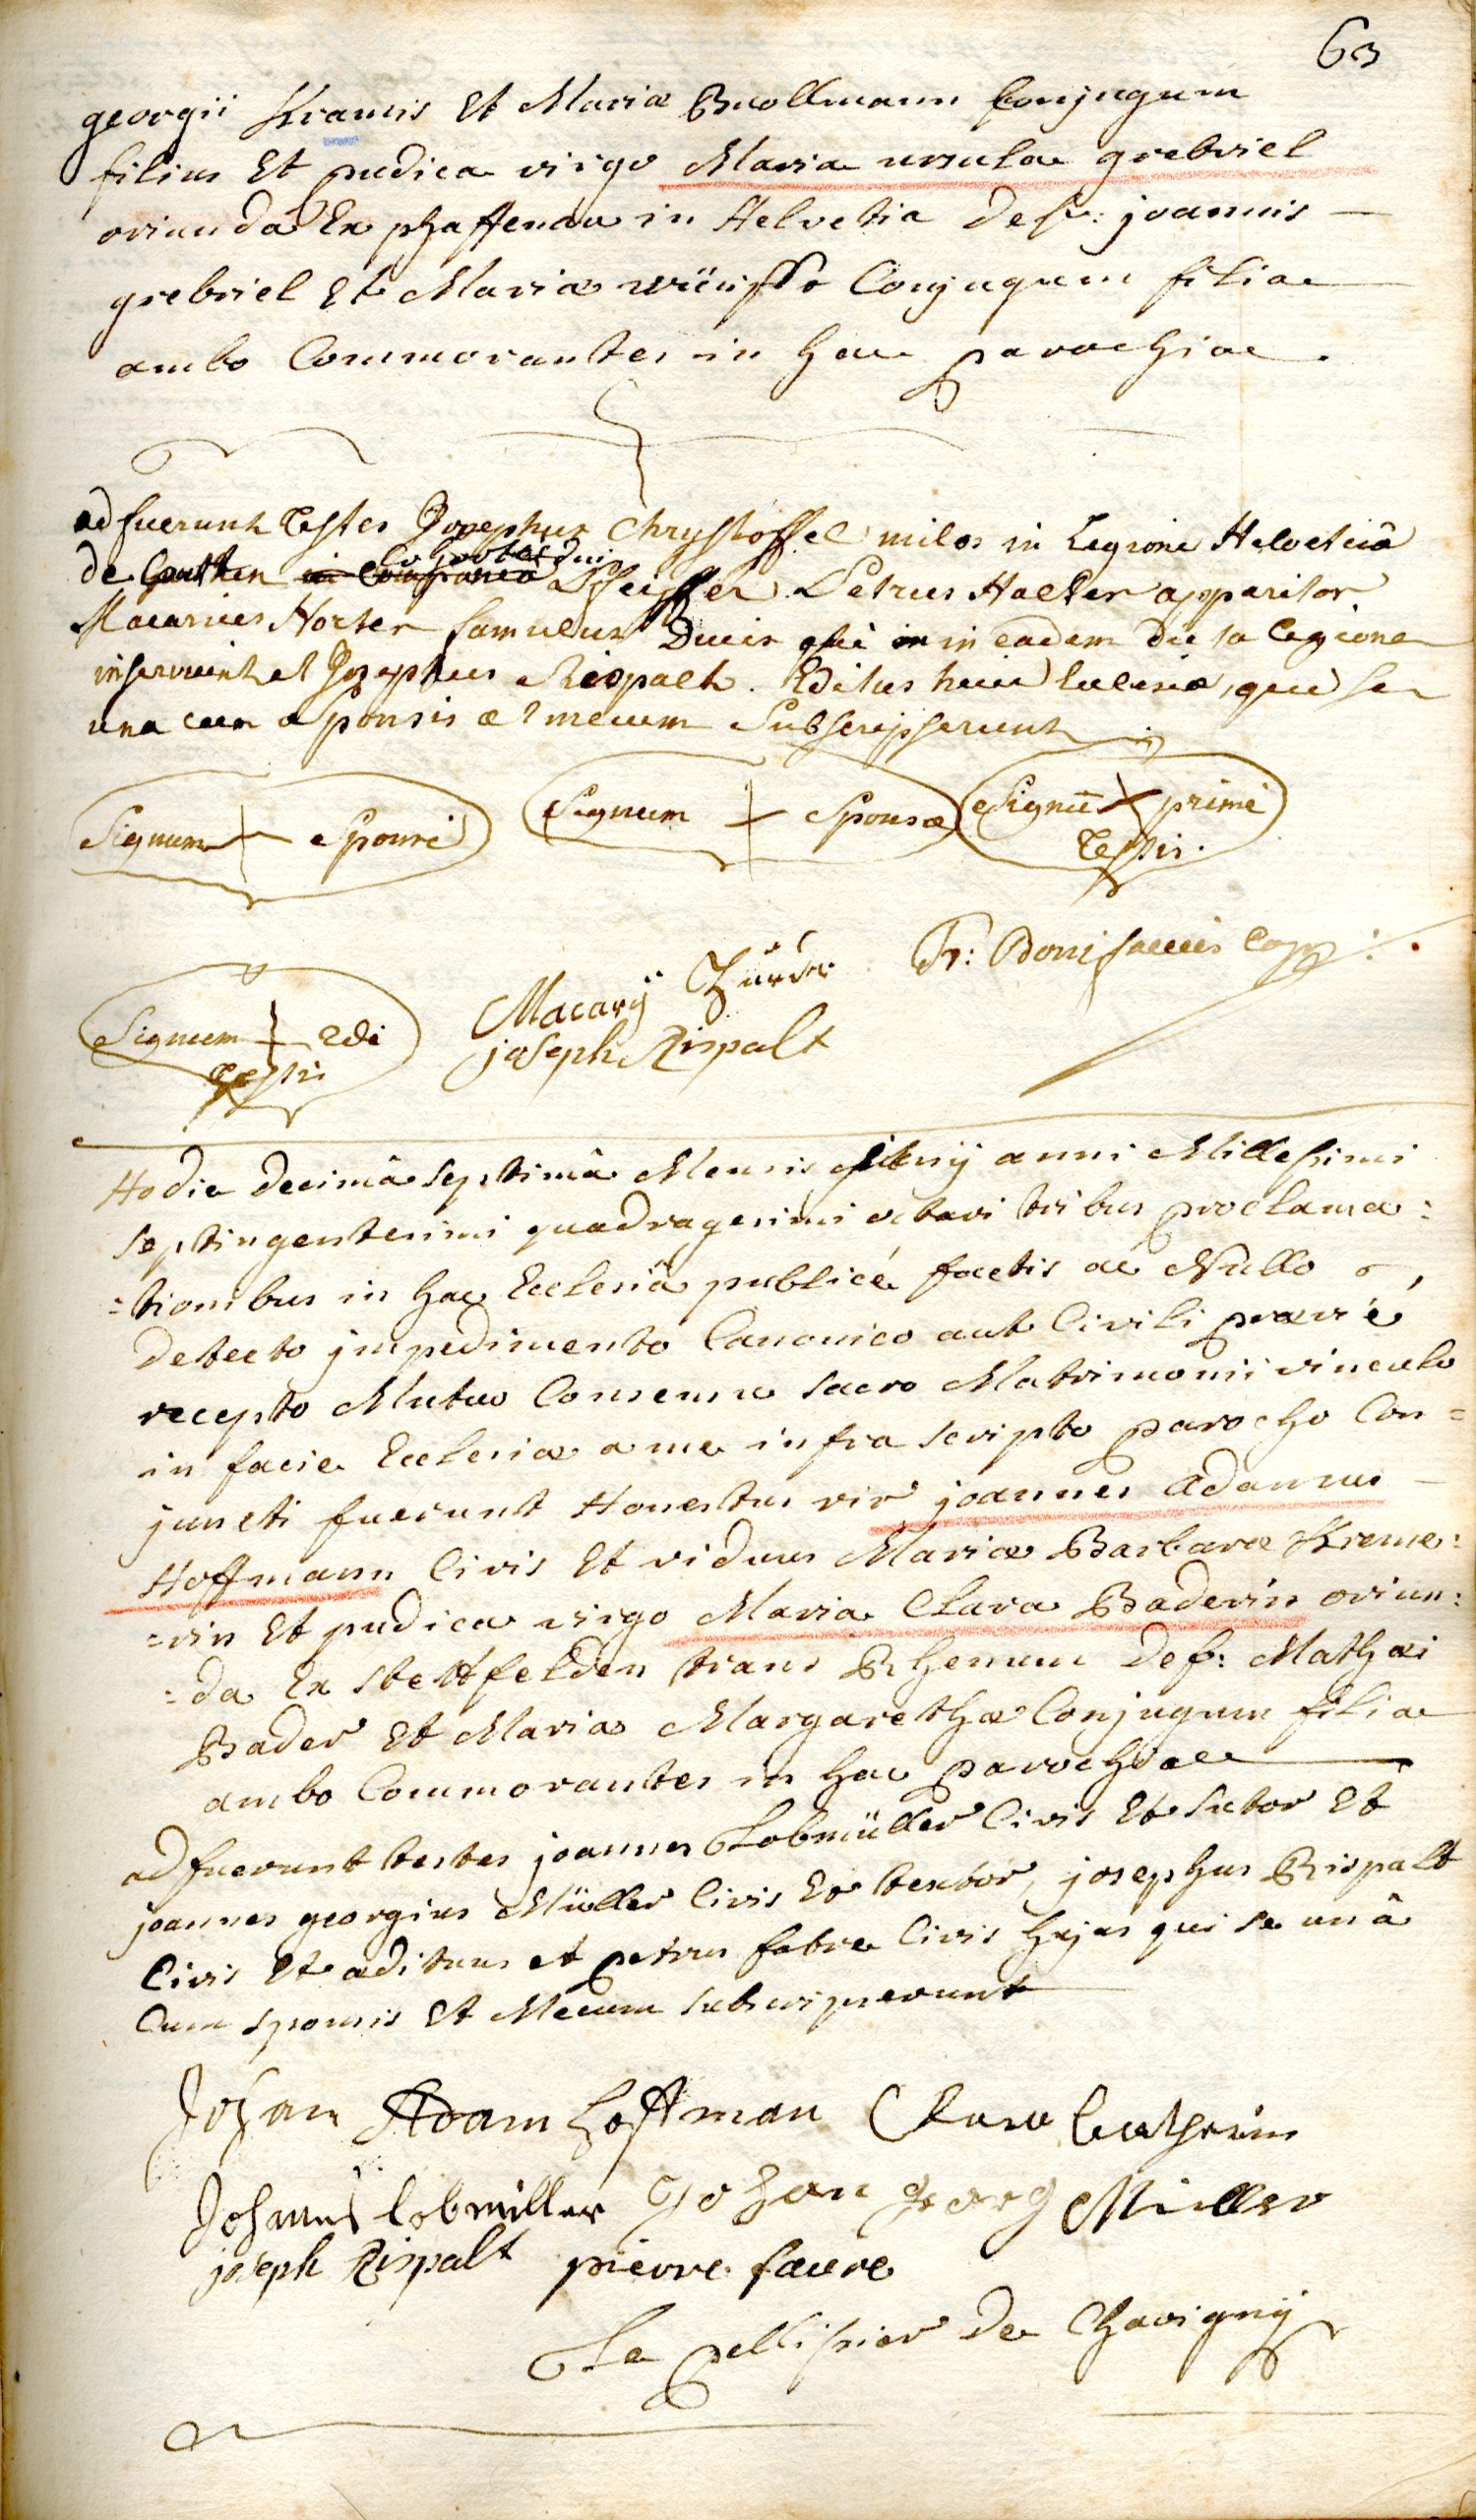 63
georgii Kramis Et Mariæ Buollmann Conjugum
filius Et pudica virgo Maria ursula grebviel
oriunda Ex phaffenau in Helvetia def: joannis —
grebviel Et Mariæ Conjugum filia
ambo Commorantes in hac parochia.
adfuerunt Testes Josephus Chrystoffel miles in Legione Helveticâ
de Cohortis dni Pfeiffer Petrus Halter apparitor
Macarius famulus Ducis qui in eadem legione
inserviunt et Josephus Rispalt Æditus huius Ecclesiæ, qui se
una cum sponsis et mecum Subscripserunt
Signum + Sponsi Signum + Sponsæ Signū + primi
Testis.
Fr: Bonifacius Capp:
Macarÿ Zürcher
Signum + 2di joseph Rispalt
Testis
Hodie decimâ septimâ Mensis anni Millesimi
septingentesimi quadragesimi octavi tribus proclama=
=tionibus in hac Ecclesiâ publicé factis ac Nullo
detecto jmpedimento Canonico aut Civili prævié
recepto Mutuo Consensu sacro Matrimonii vinculo
in facie Ecclesiæ a me infra scripto parocho Con=
juncti fuerunt Honestus vir joannes adamus —
Hoffmann Civis Et viduus Mariæ Barbaræ Kreme=
=rin Et pudica virgo Maria Clara Baderin oriun=
=da Ex stettfelden trans Rhenum def: Mathæi
Bader Et Mariæ Margarethæ Conjugum filia
ambo Commorantes in hac parochia
adfuerunt testes joannes Lobmüller Civis Et sutor Et
joannes georgius Müller Civis Et textor, josephus Rispalt
Civis Et ædituus et petrus fabre Civis hujas qui se unâ
Cum sponsis Et Mecum subscripserunt
Johan Adam Hoffman Clara
Johannes lobmiller Johan georg Müller
joseph Rispalt pierre faure
Le pellissier De Chavigny